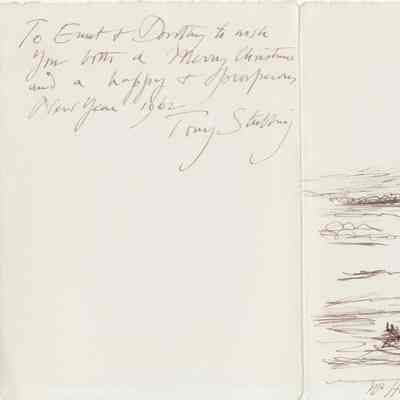 To Ernest & Dorothy to wish
you both a Merry Christmas
and a happy & prosperous
New Year 1962
Tony Stubbing